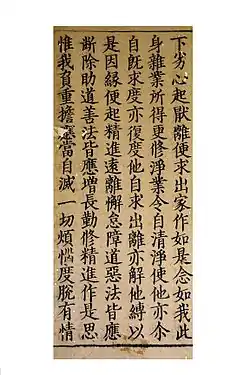 下劣心起猒離便求出家作如是念如我此
身雜業所得更修淨業令自清淨使他亦尒
自旣求度亦復度他自求出離亦解他縛以
是因緣便起精進遠離懈怠障道惡法皆應
断除助道善法皆應增長勤修精進作是思
惟我負重擔應當自滅一切煩惱度脫有情